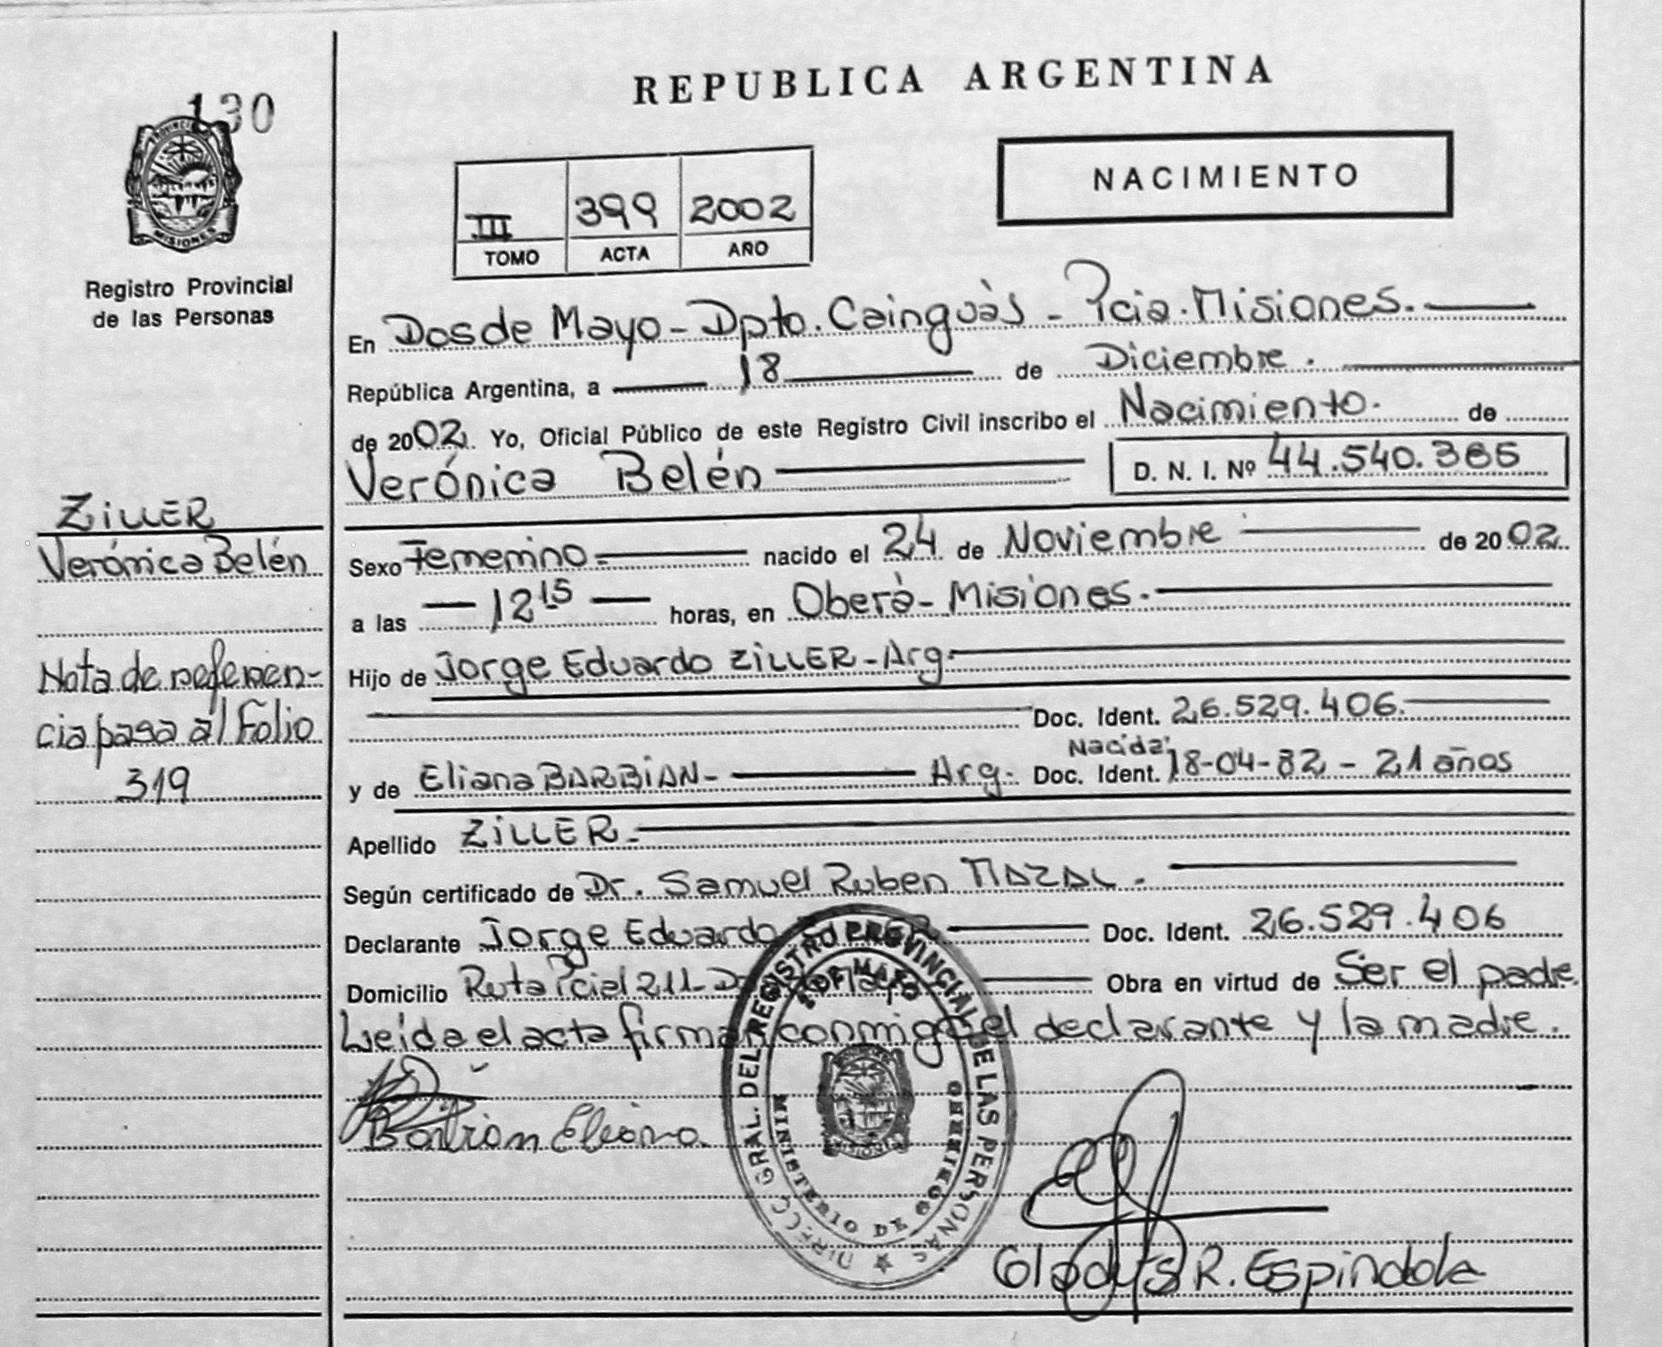 130
PROVINCIA
MISIONES
Registro Provincial
de las Personas
REPUBLICA ARGENTINA
NACIMIENTO
III 399 2002
TOMO ACTA AÑO
En Dos de Mayo - Dpto. Cainguàs - Pcia. Misiones.
República Argentina, a 18 de Diciembre.
de 2002. Yo, Oficial Público de este Registro Civil inscribo el Nacimiento. de
Verónica Belén D. N. I. Nº 44.540.365
ZILLER
Verónica Belén
Nota de referen-
cia pasa al Folio
319
Sexo Femenino = nacido el 24 de Noviembre de 2002.
a las — 12 15 — horas, en Oberà - Misiones.
Hijo de Jorge Eduardo ZILLER - Arg.
Doc. Ident. 26.529.406.
Nacida:
y de Eliana BARBIAN - Arg. Doc. Ident. 18-04-82 - 21 años
Apellido ZILLER.
Según certificado de Dr. Samuel Ruben MAZAL.
Declarante Jorge Eduardo Doc. Ident. 26.529.406
Domicilio Ruta Pcial 211 - Dos de Mayo Obra en virtud de Ser el padre.
Leída el acta firman conmigo el declarante y la madre.
Barbian Eliana.
DIRECC GRAL. DEL REGISTRO PROVINCIAL DE LAS PERSONAS
2 DE MAYO
MINISTERIO DE GOBIERNO
MISIONES
Gladys R. Espindola